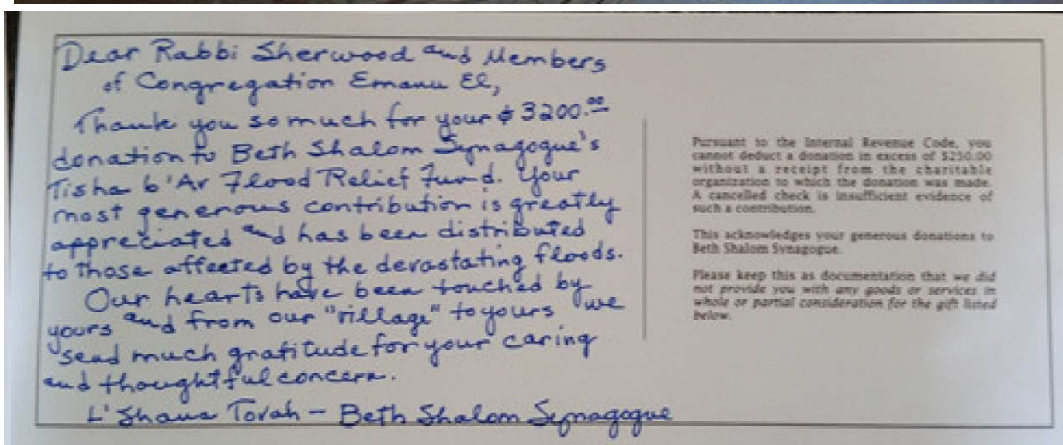 Dear Rabbi Sherwood and Members
of Congregation Emanu El,
Thank you so much for your $3200.00
donation to Beth Shalom Synagogue's
Tisha b'Av Flood Relief Fund. Your
most generous contribution is greatly
appreciated and has been distributed
to those affected by the devastating floods.
Our hearts have been touched by
yours and from our "village" to yours we
send much gratitude for your caring
and thoughtful concern.
L'Shana Tovah - Beth Shalom Synagogue
Pursuant to the Internal Revenue Code, you
cannot deduct a donation in excess of $250.00
without a receipt from the charitable
organization to which the donation was made.
A cancelled check is insufficient evidence of
such a contribution.
This acknowledges your generous donations to
Beth Shalom Synagogue.
Please keep this as documentation that we did
not provide you with any goods or services in
whole or partial consideration for the gift listed
below.